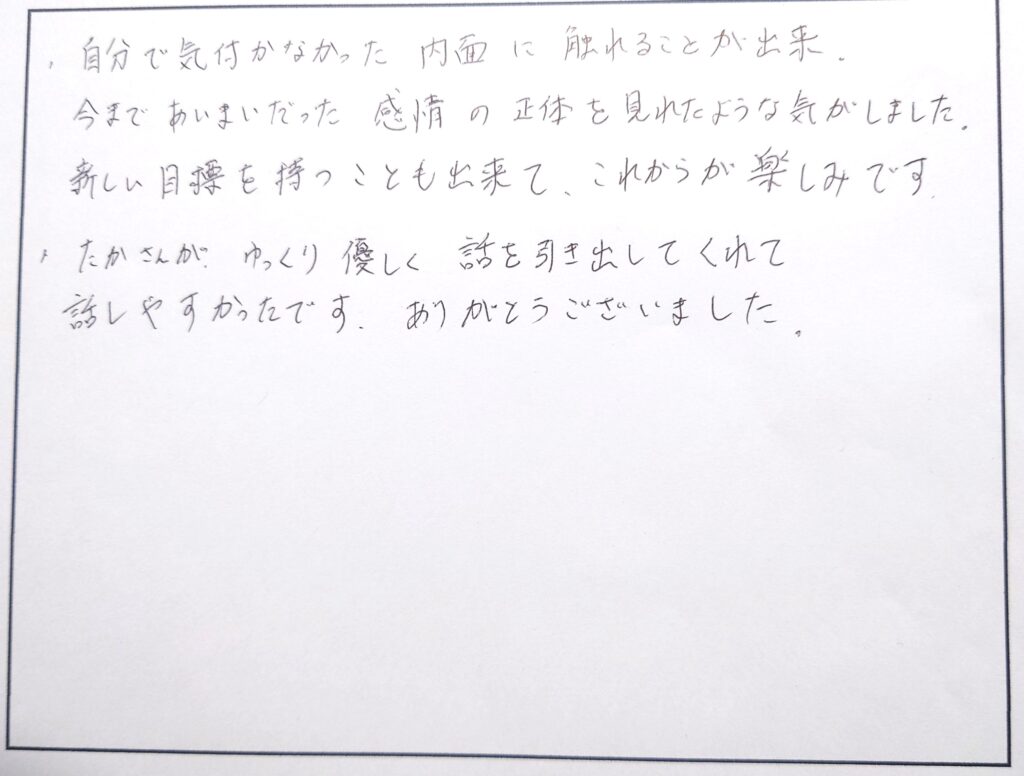 ・自分で気付かなかった 内面 に 触れることが出来、
今まで あいまいだった 感情 の 正体 を 見れたような気がしました。
新しい 目標 を 持つ ことも出来て、これからが 楽しみです。
・たかさんが、ゆっくり 優しく 話を引き出してくれて
話しやすかったです。ありがとうございました。